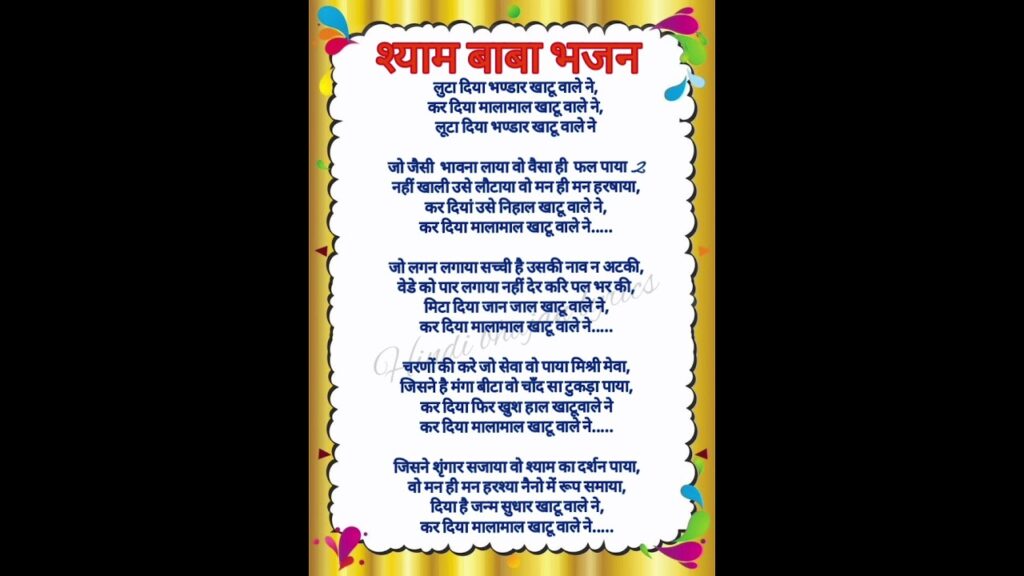 श्याम बाबा भजन
लुटा दिया भण्डार खाटू वाले ने,
कर दिया मालामाल खाटू वाले ने,
लूटा दिया भण्डार खाटू वाले ने
जो जैसी भावना लाया वो वैसा ही फल पाया 2
नहीं खाली उसे लौटाया वो मन ही मन हरषाया,
कर दियां उसे निहाल खाटू वाले ने,
कर दिया मालामाल खाटू वाले ने.....
जो लगन लगाया सच्ची है उसकी नाव न अटकी,
वेडे को पार लगाया नहीं देर करि पल भर की,
मिटा दिया जान जाल खाटू वाले ने,
कर दिया मालामाल खाटू वाले ने.....
Hindi bhajan lyrics
चरणों की करे जो सेवा वो पाया मिश्री मेवा,
जिसने है मंगा बीटा वो चाँद सा टुकड़ा पाया,
कर दिया फिर खुश हाल खाटूवाले ने
कर दिया मालामाल खाटू वाले ने.....
जिसने शृंगार सजाया वो श्याम का दर्शन पाया,
वो मन ही मन हरश्या नैनो में रूप समाया,
दिया है जन्म सुधार खाटू वाले ने,
कर दिया मालामाल खाटू वाले ने.....